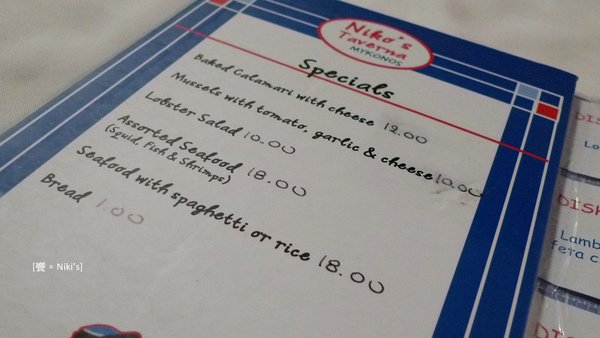 Niko's
Taverna
MYKONOS
Specials
Baked Calamari with cheese 12.00
Mussels with tomato, garlic & cheese 10.00
Lobster Salad 10.00
Assorted Seafood 18.00
(Squid, Fish & Shrimps)
Seafood with spaghetti or rice 18.00
Bread 1.00
DIS
Lo
DISH
Lamb
feta c
DI
[饗。Niki's]